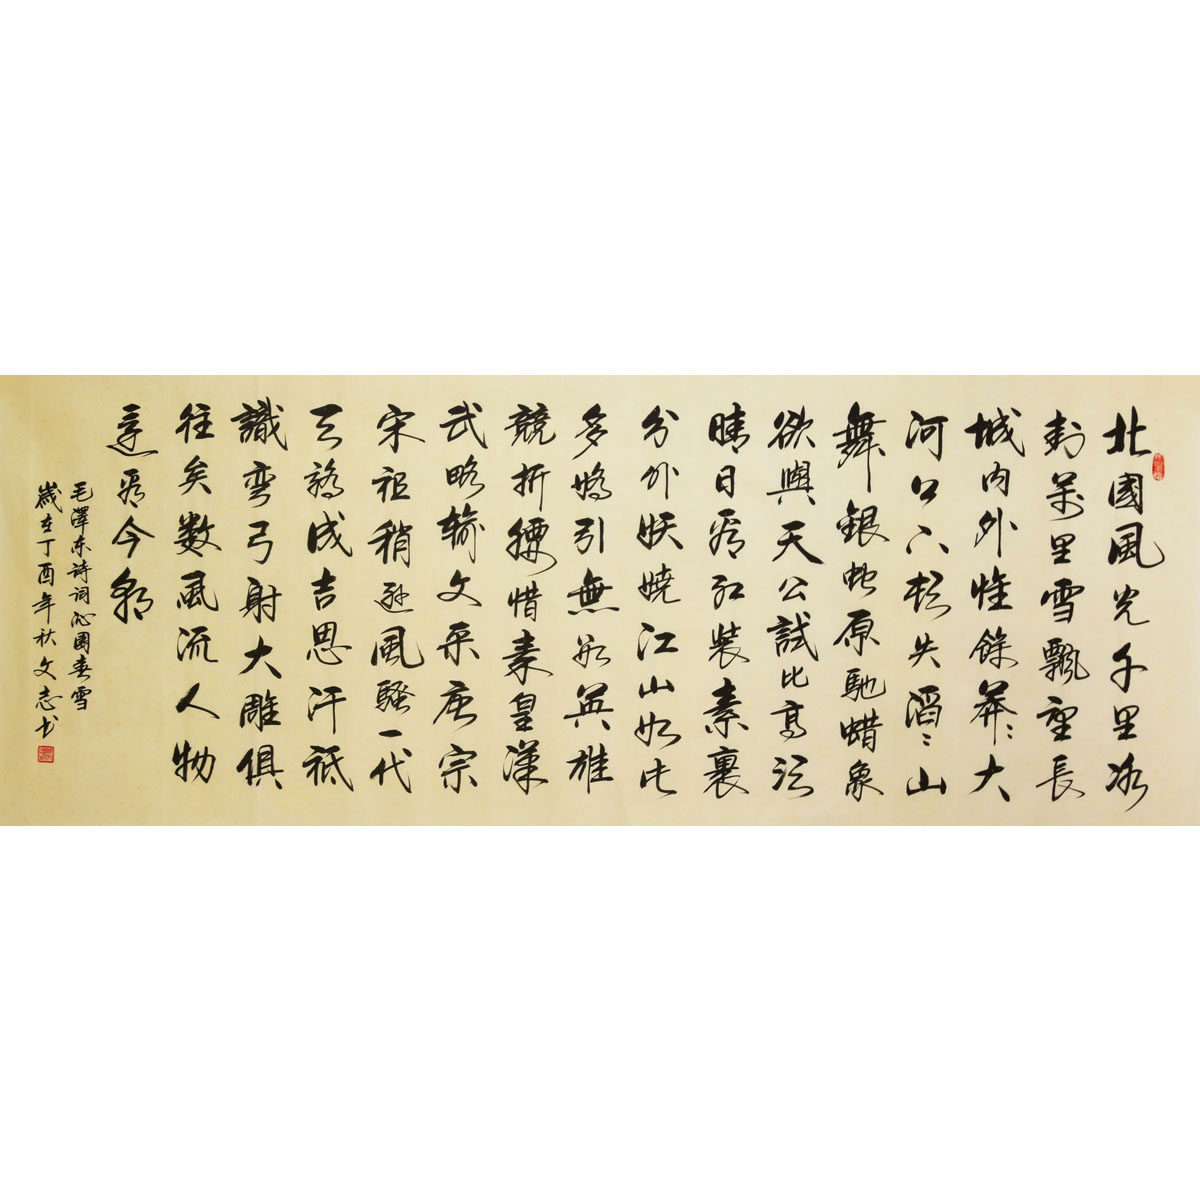 北國風光千里冰
封萬里雪飄望長
城内外惟餘莽〻大
河上下頓失滔〻山
舞銀蛇原馳蠟象
欲與天公試比高須
晴日看紅裝素裹
分外妖嬈江山如此
多嬌引無數英雄
競折腰惜秦皇漢
武略輸文采唐宗
宋祖稍遜風騷一代
天驕成吉思汗祗
識彎弓射大雕俱
往矣数風流人物
還看今朝
毛澤东诗词沁園春雪
歲在丁酉年秋文志书